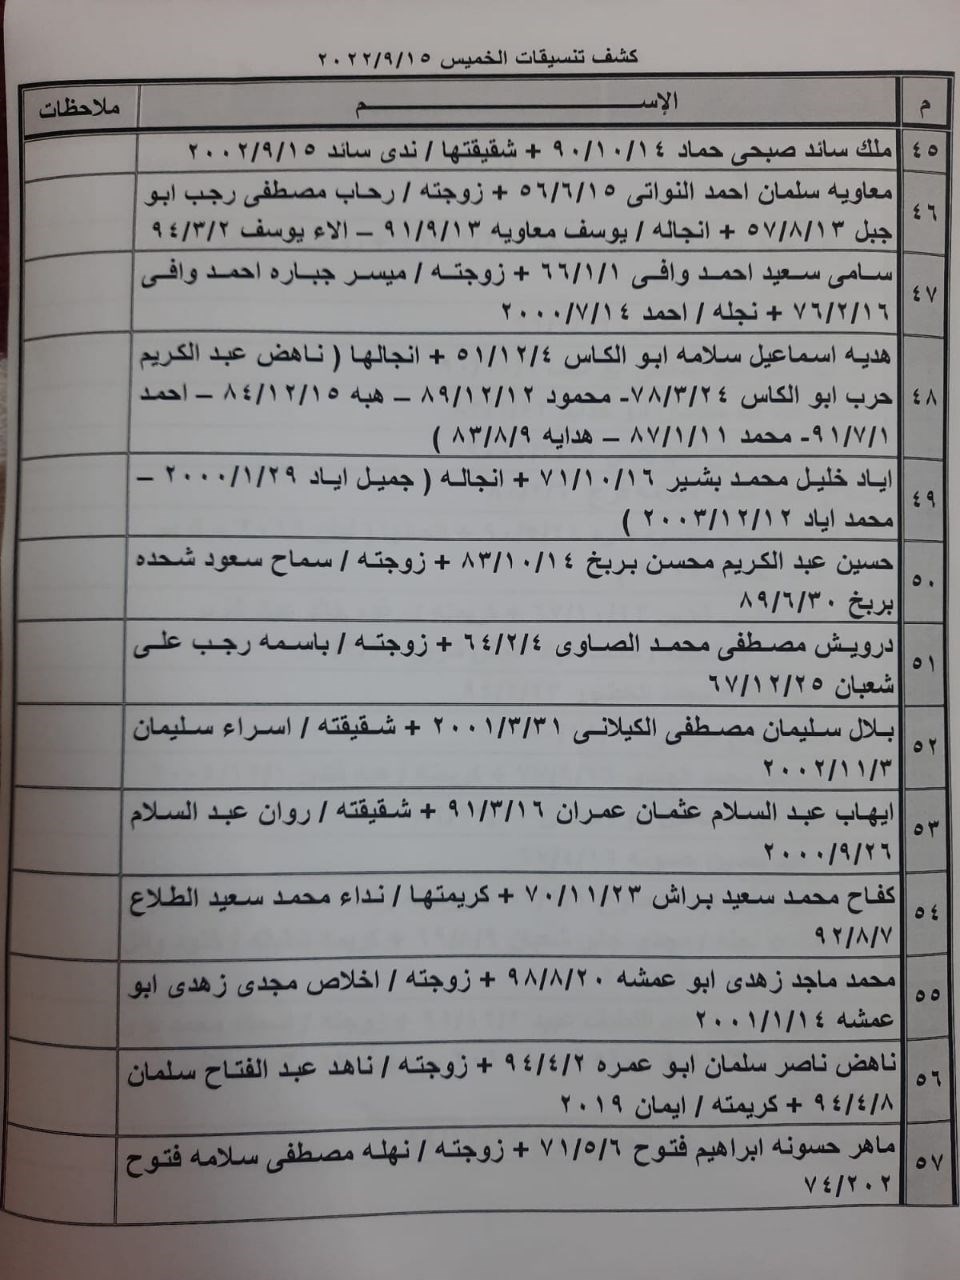 كشف تنسيقات الخميس ٢٠٢٢/٩/١٥
م الإســـــــم ملاحظات
٤٥ ملك سائد صبحى حماد ٩٠/١٠/١٤ + شقيقتها / ندى سائد ٢٠٠٢/٩/١٥
٤٦ معاويه سلمان احمد النواتى ٥٦/٦/١٥ + زوجته / رحاب مصطفى رجب ابو
جبل ٥٧/٨/١٣ + انجاله / يوسف معاويه ٩١/٩/١٣ – الاء يوسف ٩٤/٣/٢
٤٧ سامى سعيد احمد وافى ٦٦/١/١ + زوجته / ميسر جباره احمد وافى
٧٦/٢/١٦ + نجله / احمد ٢٠٠٠/٧/١٤
٤٨ هديه اسماعيل سلامه ابو الكاس ٥١/١٢/٤ + انجالها ( ناهض عبد الكريم
حرب ابو الكاس ٧٨/٣/٢٤- محمود ٨٩/١٢/١٢ – هبه ٨٤/١٢/١٥ – احمد
٩١/٧/١- محمد ٨٧/١/١١ – هدايه ٨٣/٨/٩ )
٤٩ اياد خليل محمد بشير ٧١/١٠/١٦ + انجاله ( جميل اياد ٢٠٠٠/١/٢٩ –
محمد اياد ٢٠٠٣/١٢/١٢ )
٥٠ حسين عبد الكريم محسن بربخ ٨٣/١٠/١٤ + زوجته / سماح سعود شحده
بربخ ٨٩/٦/٣٠
٥١ درويش مصطفى محمد الصاوى ٦٤/٢/٤ + زوجته / باسمه رجب على
شعبان ٦٧/١٢/٢٥
٥٢ بلال سليمان مصطفى الكيلانى ٢٠٠١/٣/٣١ + شقيقته / اسراء سليمان
٢٠٠٢/١١/٣
٥٣ ايهاب عبد السلام عثمان عمران ٩١/٣/١٦ + شقيقته / روان عبد السلام
٢٠٠٠/٩/٢٦
٥٤ كفاح محمد سعيد براش ٧٠/١١/٢٣ + كريمتها / نداء محمد سعيد الطلاع
٩٢/٨/٧
٥٥ محمد ماجد زهدى ابو عمشه ٩٨/٨/٢٠ + زوجته / اخلاص مجدى زهدى ابو
عمشه ٢٠٠١/١/١٤
٥٦ ناهض ناصر سلمان ابو عمره ٩٤/٤/٢ + زوجته / ناهد عبد الفتاح سلمان
٩٤/٤/٨ + كريمته / ايمان ٢٠١٩
٥٧ ماهر حسونه ابراهيم فتوح ٧١/٥/٦ + زوجته / نهله مصطفى سلامه فتوح
٧٤/٢٠٢